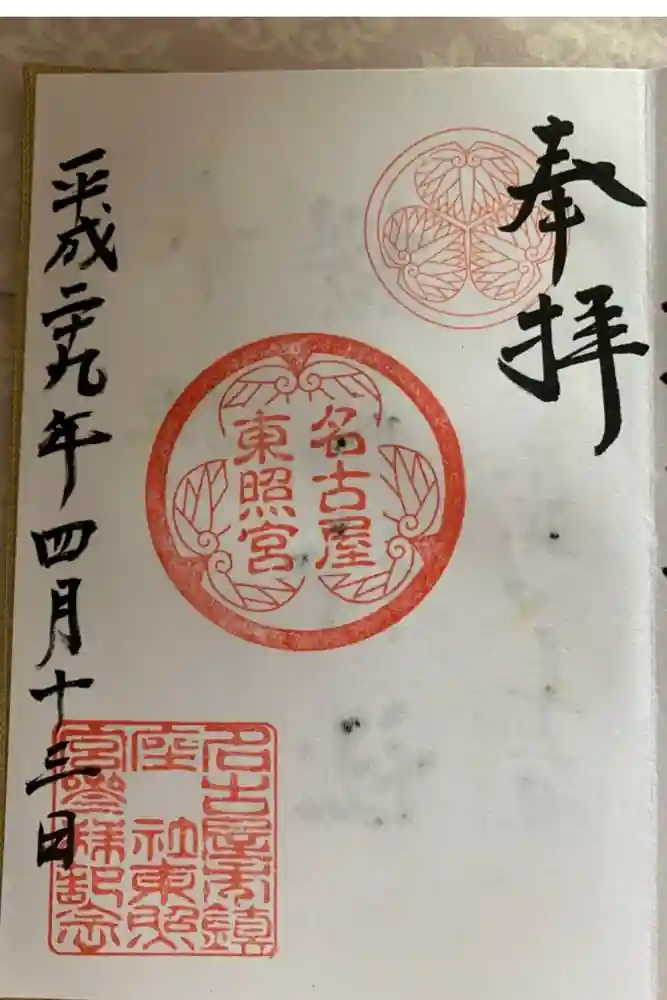 奉拝
名古屋
東照宮
名古屋市鎮
座 社東照
宮參拜記念
平成二十九年四月十三日